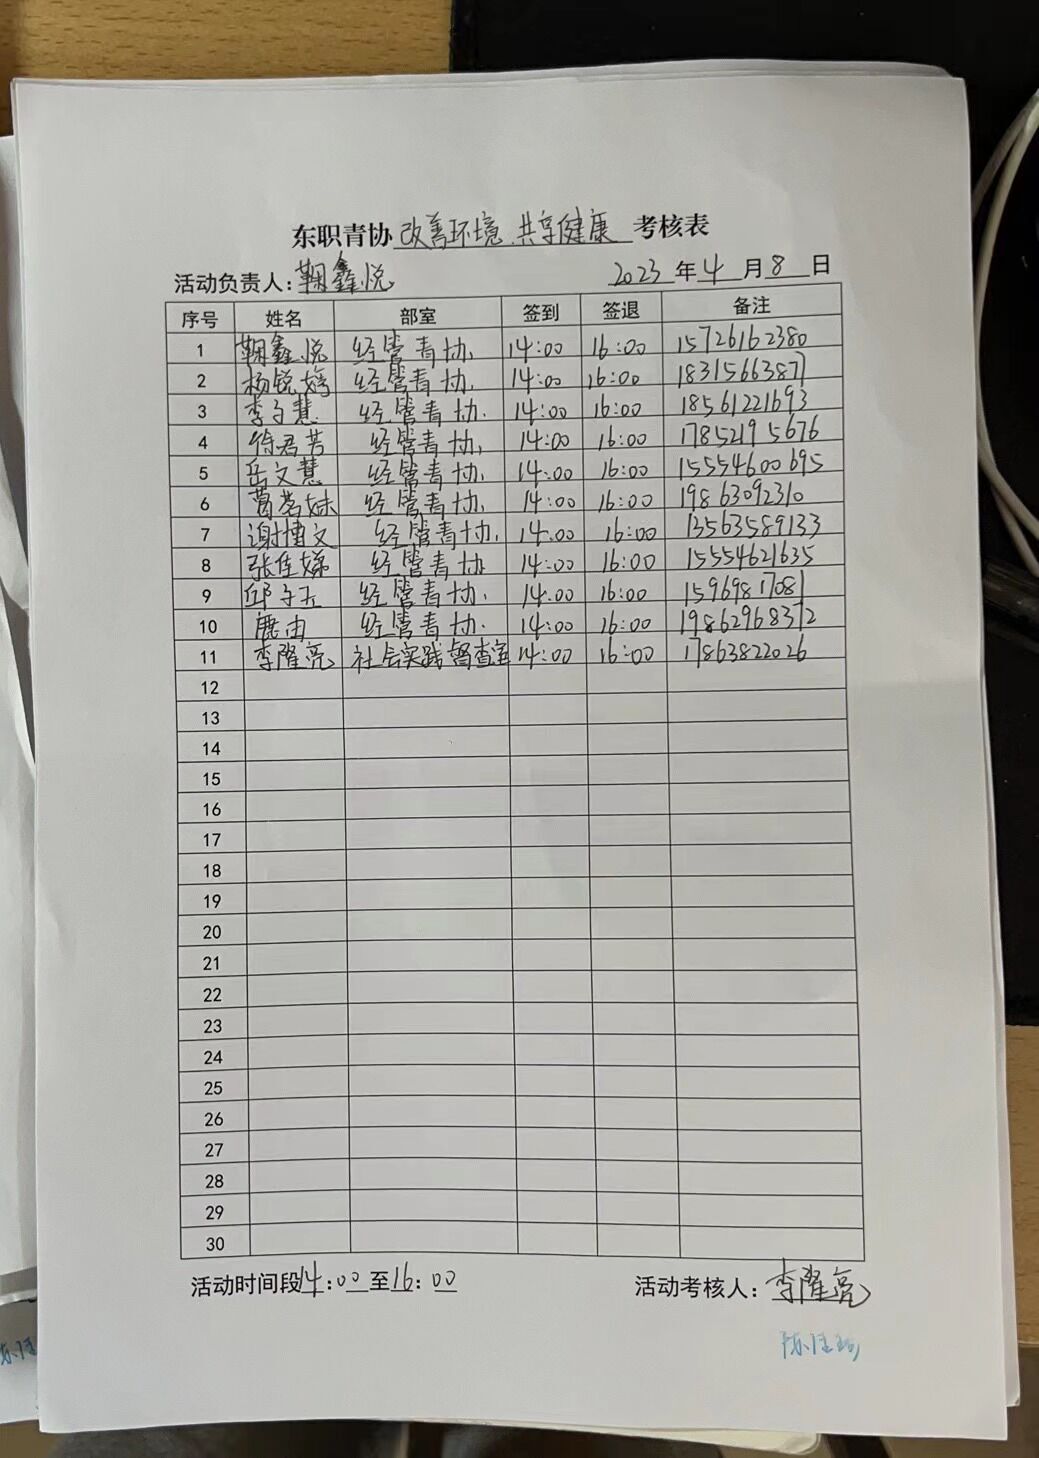 东职青协 改善环境 共享健康 考核表
活动负责人: 鞠鑫悦 2023 年 4 月 8 日
序号 姓名 部室 签到 签退 备注
1 鞠鑫悦 经管青协 14:00 16:00 15726162380
2 杨锐嫣 经管青协 14:00 16:00 18315663877
3 李子慧 经管青协 14:00 16:00 18561221693
4 徐君芳 经管青协 14:00 16:00 17852195676
5 岳文慧 经管青协 14:00 16:00 15554600695
6 葛茗妹 经管青协 14:00 16:00 19863092310
7 谢博文 经管青协 14:00 16:00 13563589133
8 张佳娣 经管青协 14:00 16:00 15554621635
9 邱子 经管青协 14:00 16:00 15969817081
10 鹿由 经管青协 14:00 16:00 19862968372
11 李隆亮 社会实践督查室 14:00 16:00 17863822026
12
13
14
15
16
17
18
19
20
21
22
23
24
25
26
27
28
29
30
活动时间段14:00至16:00 活动考核人: 李隆亮